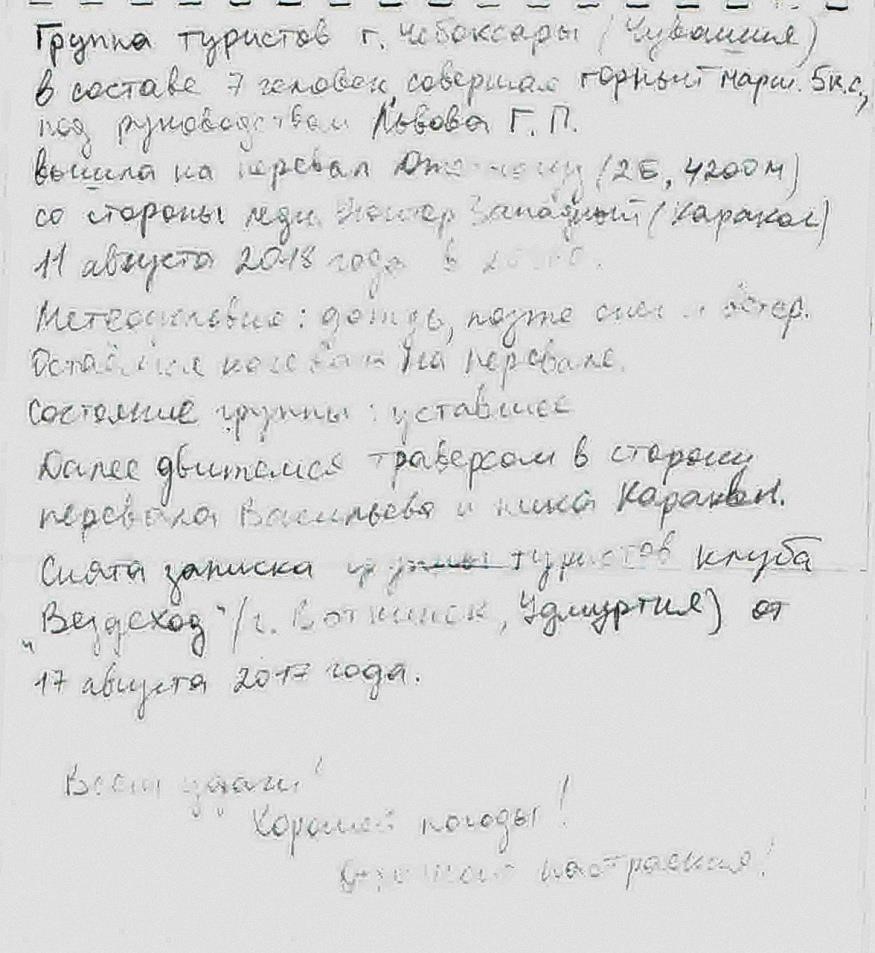 Группа туристов г. Чебоксары (Чувашия)
в составе 7 человек, совершая горный марш. 5к.с.,
под руководством Львова Г.П.
вышла на перевал (2Б, 4200м)
со стороны ледн. Западный (Каракол)
11 августа 2018 года в
Метеоусловия: дождь, позже снег и ветер.
Остаёмся ночевать на перевале.
Состояние группы: уставшее
Далее движемся траверсом в сторону
перевала Васильева и пика Каракол.
Снята записка группы туристов клуба
"Вездеход" (г. Воткинск, Удмуртия) от
17 августа 2017 года.
Всем удачи!
Хорошей погоды!
настроения!